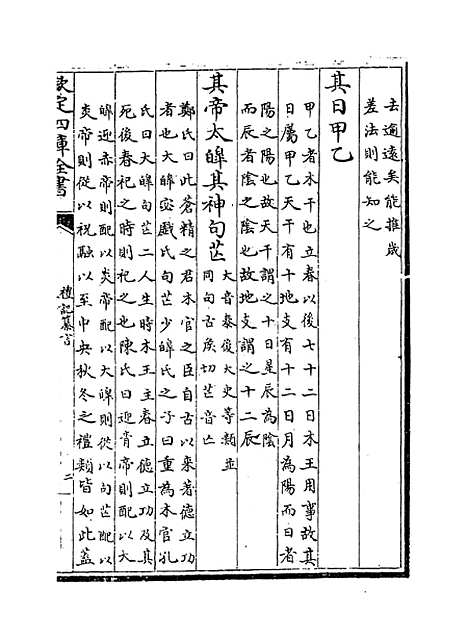 去逾遠矣能推歲
差法則能知之
其日甲乙
甲乙者木干也立春以後七十二日木王用事故其
日屬甲乙天干有十地支有十二日月為陽而日者
陽之陽也故天干謂之十日星辰為陰
而辰者陰之陰也故地支謂之十二辰
其帝太皥其神句芒
大音泰後大史等類並
同句古侯切芒音亡
鄭氏曰此蒼精之君木官之臣自古以來著德立功
者也大皥宓戲氏句芒少皥氏之子曰重為木官孔
氏曰大皥句芒二人生時木王主春立德立功及其
死後春祀之時則祀之也陳氏曰迎青帝則配以大
皥迎赤帝則配以炎帝配以大皥則從以句芒配以
炎帝則從以祝融以至中央秋冬之禮類皆如此蓋
欽定四庫全書
禮記纂言
二